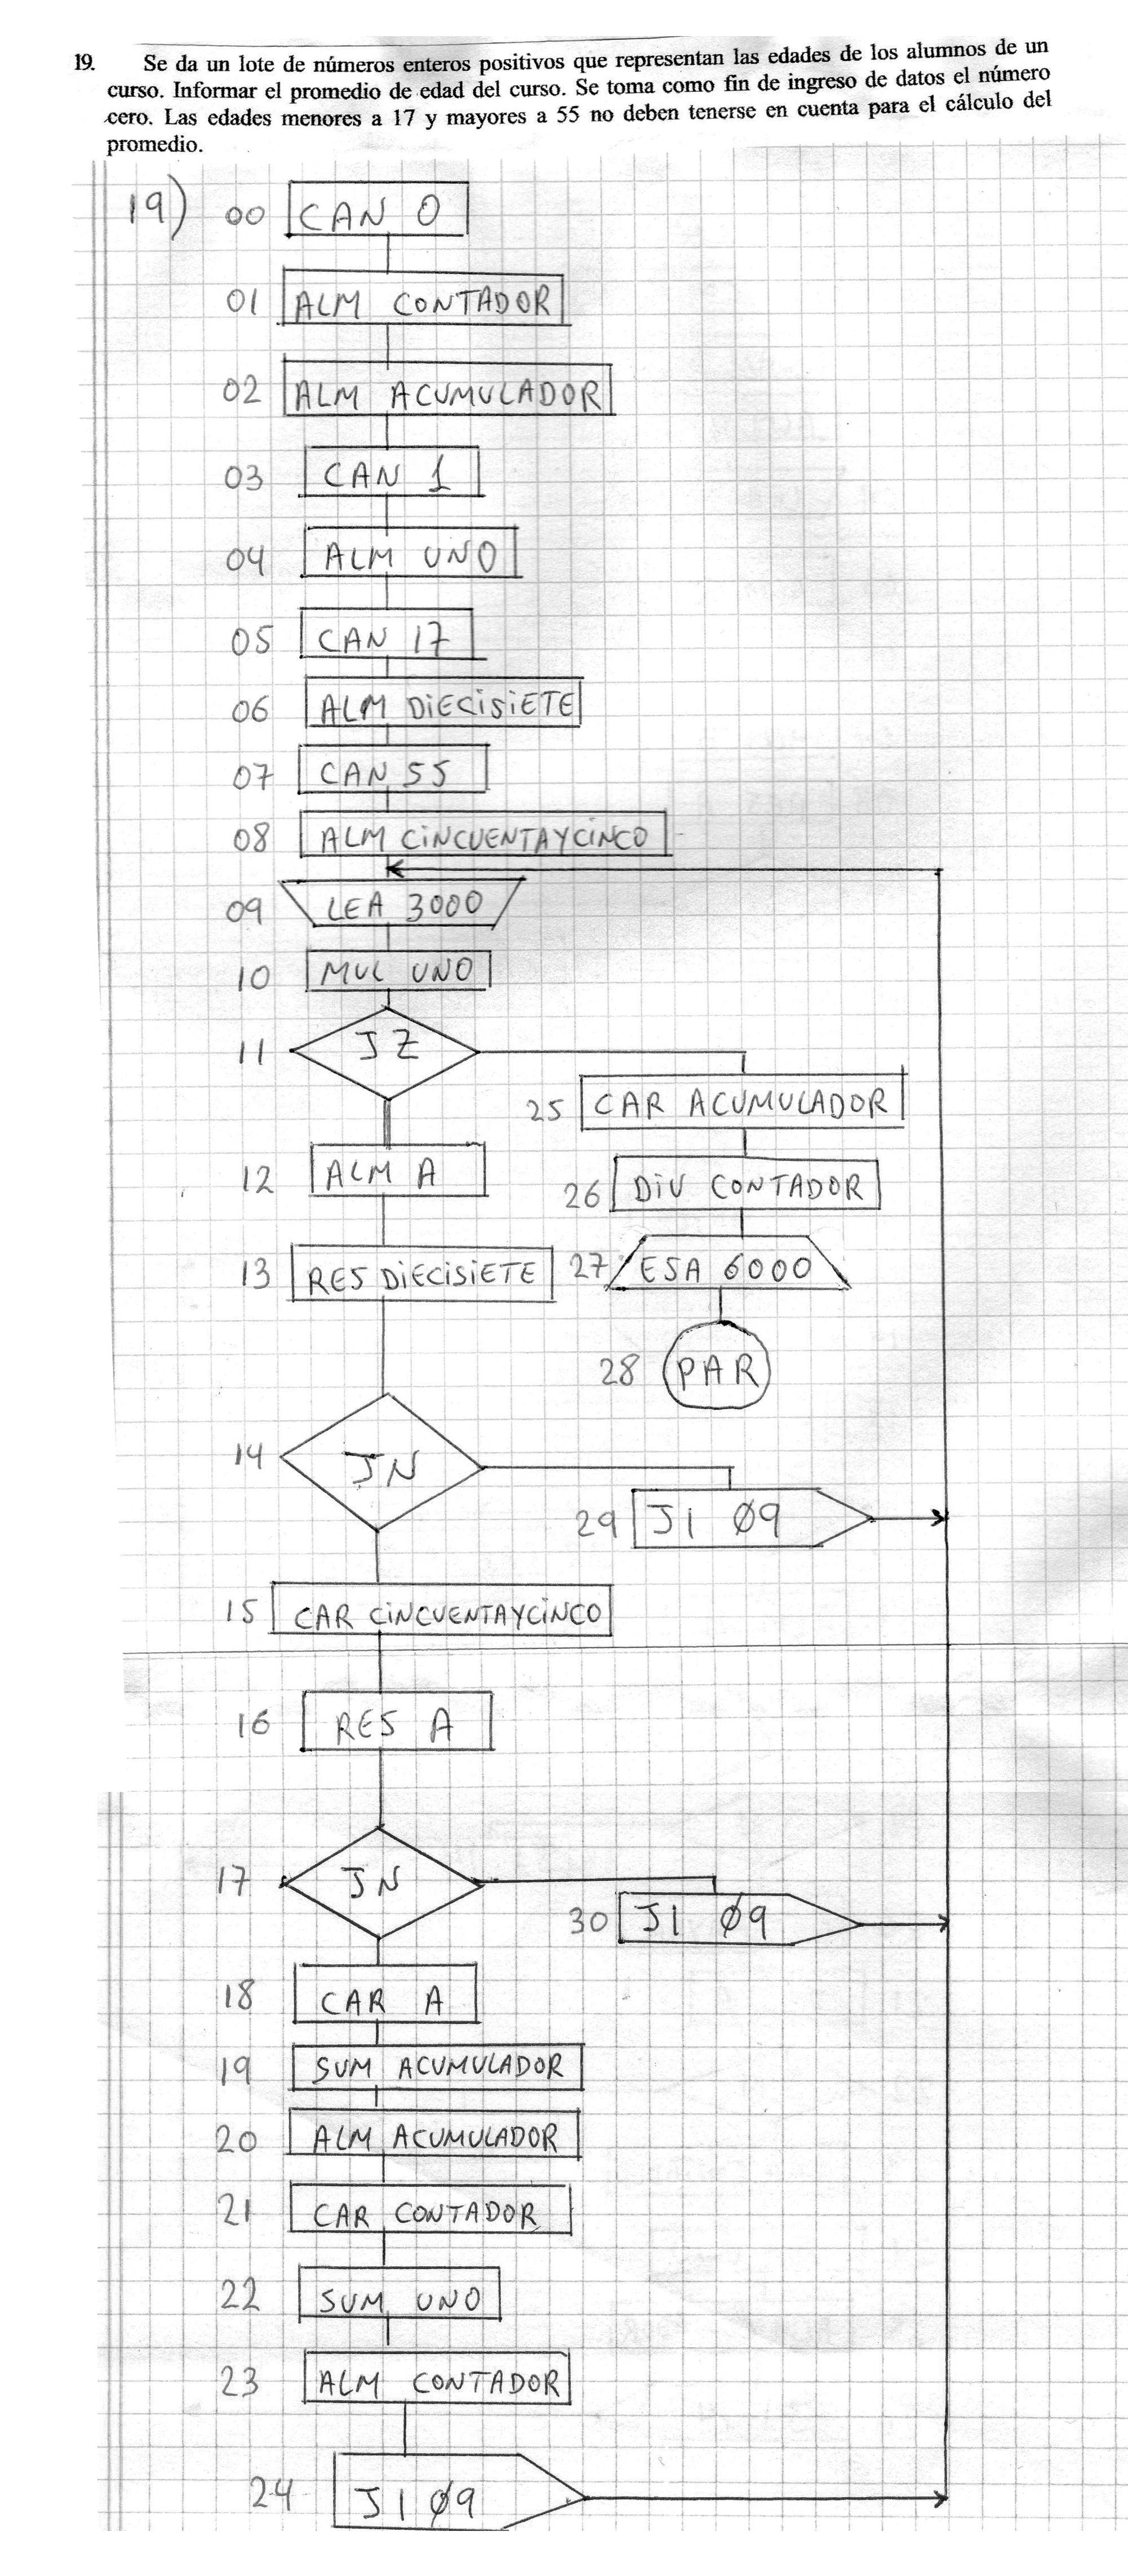 19. Se da un lote de números enteros positivos que representan las edades de los alumnos de un
curso. Informar el promedio de edad del curso. Se toma como fin de ingreso de datos el número
cero. Las edades menores a 17 y mayores a 55 no deben tenerse en cuenta para el cálculo del
promedio.
19) 00 CAN 0
01 ALM CONTADOR
02 ALM ACUMULADOR
03 CAN 1
04 ALM UNO
05 CAN 17
06 ALM DIECISIETE
07 CAN 55
08 ALM CINCUENTAYCINCO
09 LEA 3000
10 MUL UNO
11 JZ
25 CAR ACUMULADOR
12 ALM A
26 DIV CONTADOR
13 RES DIECISIETE
27 ESA 6000
28 PAR
14 JN
29 J1 Ø9
15 CAR CINCUENTAYCINCO
16 RES A
17 JN
30 J1 Ø9
18 CAR A
19 SUM ACUMULADOR
20 ALM ACUMULADOR
21 CAR CONTADOR
22 SUM UNO
23 ALM CONTADOR
24 J1 Ø9